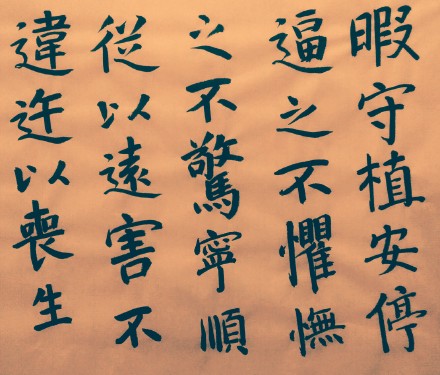 暇守植安停
逼之不懼憮
之不驚寧順
從以遠害不
違迕以喪生